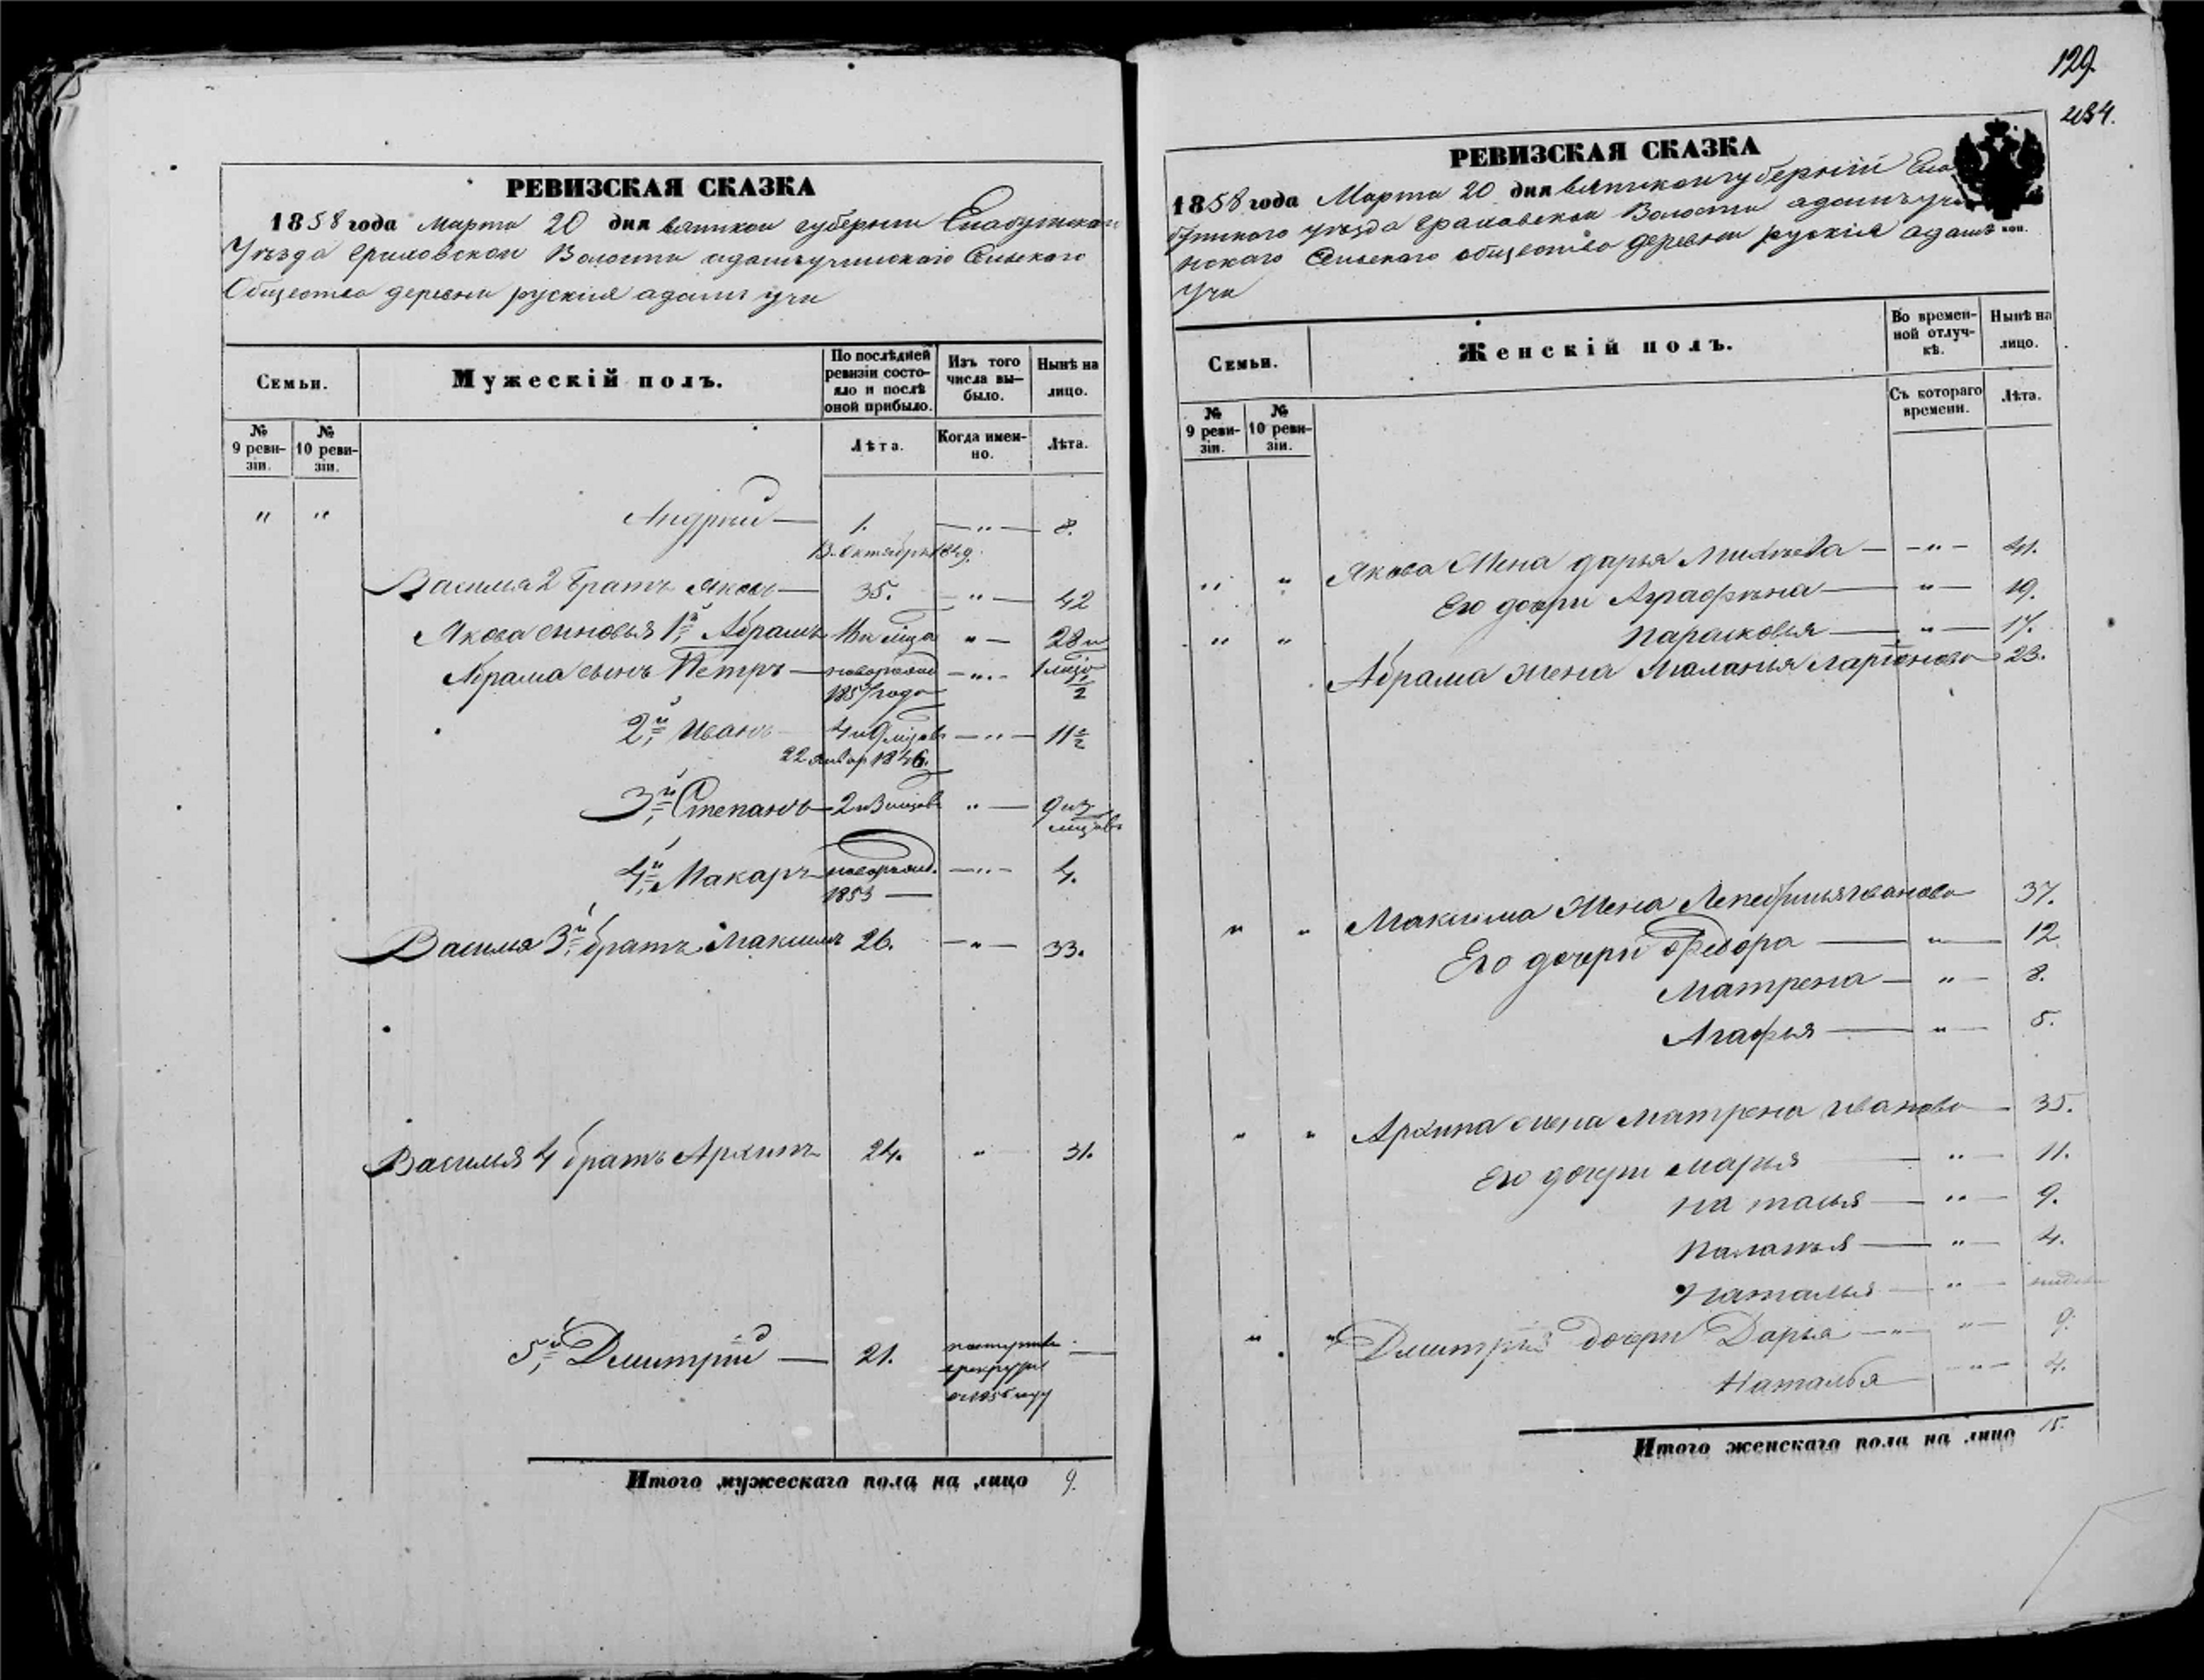 РЕВИЗСКАЯ СКАЗКА
1858 года Марта 20 дня вятской губернии Елабужскои
Уѣзда граховской Волости адамъучинского Сельскаго
Общества деревни руския адамъ учи
Семьи.
Мужескій полъ.
По послѣдней ревизіи состояло и послѣ оной прибыло.
Изъ того числа выбыло.
Нынѣ на лицо.
№ 9 ревизіи.
№ 10 ревизіи.
Лѣта.
Когда именно.
Лѣта.
" " Андрей — 1. — " — 8.
13. октября 1849.
Василья 2 братъ яковъ — 35. — " — 42
Якова сыновья 1й Абрамъ " —
Абрама сынъ Петръ — новорожд — " —
1857 года
2й Иванъ 4 и 9 мѣцовъ — " — 11 ½
22 январ 1846.
3й Степанъ — 2 и 3 мѣцовъ " —
4й Макаръ новорожд. — " — 4.
1853 —
Василья 3й братъ Максимъ 26. — " — 33.
Василья 4 братъ Архипъ 24. " 31.
5й Дмитрій — 21. —
Итого мужескаго пола на лицо 9.
129.
РЕВИЗСКАЯ СКАЗКА
1858 года Марта 20 дня вятской губерніи Ела
бужского уѣзда граховской Волости адамъучи
нскаго Сельскаго общества деревни руския адамъ
Учи
коп.
Семьи.
Женскій полъ.
Во временной отлучкѣ.
Нынѣ на лицо.
№ 9 ревизіи.
№ 10 ревизіи.
Съ котораго времени.
Лѣта.
" " Якова жена дарья — " — 41.
Его дочери Аграфѣна — " — 19.
" " парасковья — " — 17.
Абрама жена Маланья ларіонова 23.
" " Максима жена иванова 37.
Его дочери Федора — " — 12
Матрена — " — 8.
Агафья — " — 5.
" " Архипа жена матрена иванова — 35.
Его дочери марья — " — 11.
на талья — " — 9.
палагья — " — 4.
Наталья — " —
" " Дмитрия дочери Дарья — " — 9.
Наталья — " — 4.
Итого женскаго пола на лицо 15.